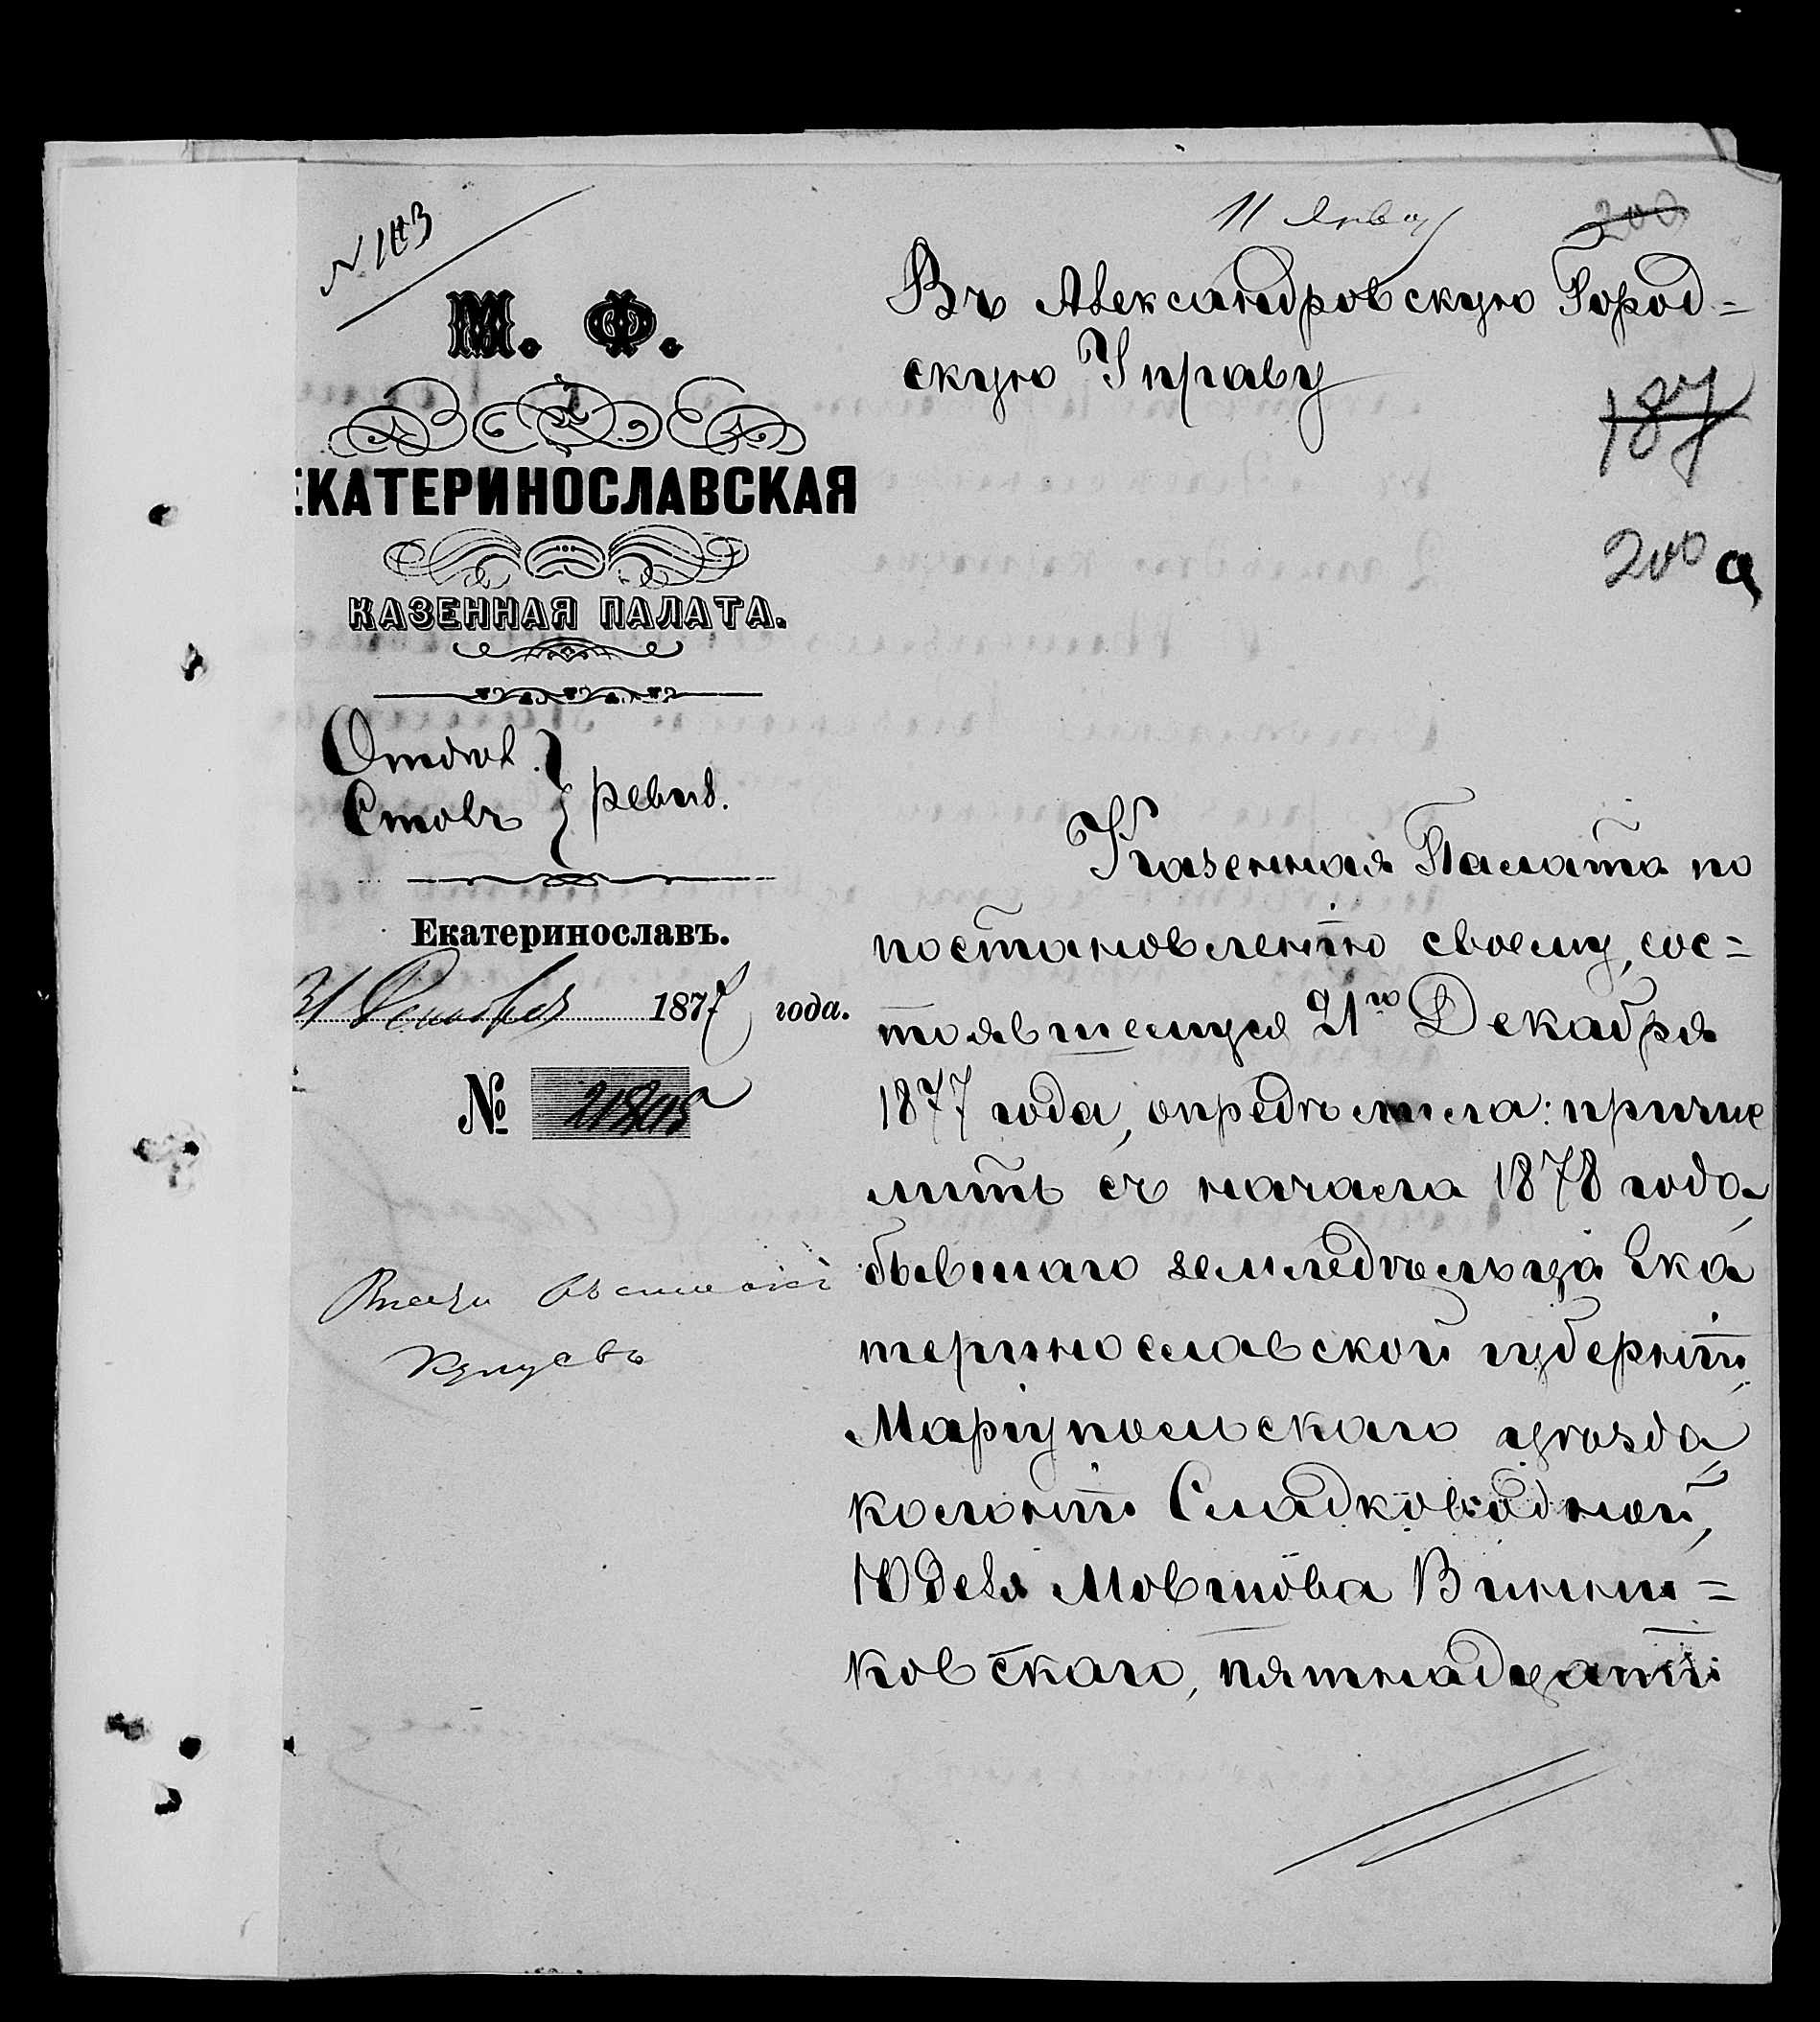 N 143
11 Янв
200
М. Ф.
ЕКАТЕРИНОСЛАВСКАЯ
КАЗЕННАЯ ПАЛАТА.
Отдѣл.
Столъ
ревиз.
Екатеринославъ.
31 Декабря 1877 года.
№
купцовъ
Въ Александровскую Город=
скую Управу
187
200 а
Казенная Палата по
постановленію своему, сос=
тоявшемуся 21го Декабря
1877 года, опредѣлила: причис
лить съ начала 1878 года
бывшаго земледѣльца Ека
теринославской губерніи,
Маріупольскаго уѣзда,
колоніи Сладководной,
Юделя Мовшова Винни=
ковскаго, пятнадцати